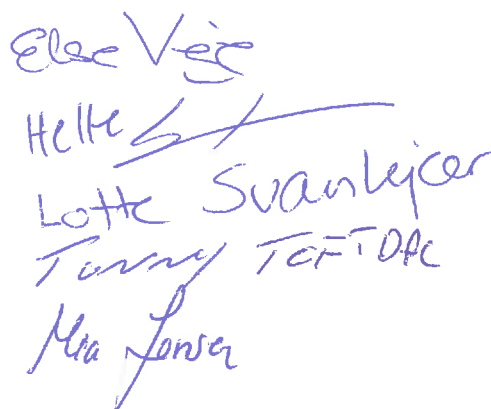 Else Veje
Helle
Lotte Svanhejcer
Tonny TOFTDAL
Mia Jensen